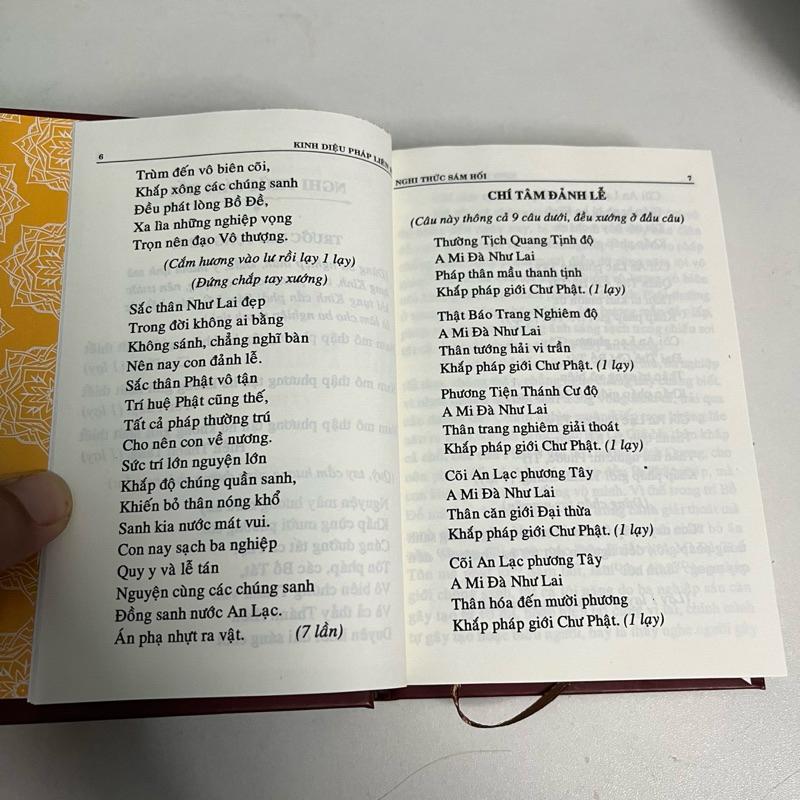 6
KINH DIỆU PHÁP LIÊN
Trùm đến vô biên cõi,
Khắp xông các chúng sanh
Đều phát lòng Bồ Đề,
Xa lìa những nghiệp vọng
Trọn nên đạo Vô thượng.
(Cắm hương vào lư rồi lạy 1 lạy)
(Đứng chắp tay xướng)
Sắc thân Như Lai đẹp
Trong đời không ai bằng
Không sánh, chẳng nghĩ bàn
Nên nay con đảnh lễ.
Sắc thân Phật vô tận
Trí huệ Phật cũng thế,
Tất cả pháp thường trú
Cho nên con về nương.
Sức trí lớn nguyện lớn
Khắp độ chúng quần sanh,
Khiến bỏ thân nóng khổ
Sanh kia nước mát vui.
Con nay sạch ba nghiệp
Quy y và lễ tán
Nguyện cùng các chúng sanh
Đồng sanh nước An Lạc.
Án phạ nhựt ra vật. (7 lần)
NGHI THỨC SÁM HỐI
7
CHÍ TÂM ĐẢNH LỄ
(Câu này thông cả 9 câu dưới, đều xướng ở đầu câu)
Thường Tịch Quang Tịnh độ
A Mi Đà Như Lai
Pháp thân mầu thanh tịnh
Khắp pháp giới Chư Phật. (1 lạy)
Thật Báo Trang Nghiêm độ
A Mi Đà Như Lai
Thân tướng hải vi trần
Khắp pháp giới Chư Phật. (1 lạy)
Phương Tiện Thánh Cư độ
A Mi Đà Như Lai
Thân trang nghiêm giải thoát
Khắp pháp giới Chư Phật. (1 lạy)
Cõi An Lạc phương Tây
A Mi Đà Như Lai
Thân căn giới Đại thừa
Khắp pháp giới Chư Phật. (1 lạy)
Cõi An Lạc phương Tây
A Mi Đà Như Lai
Thân hóa đến mười phương
Khắp pháp giới Chư Phật. (1 lạy)